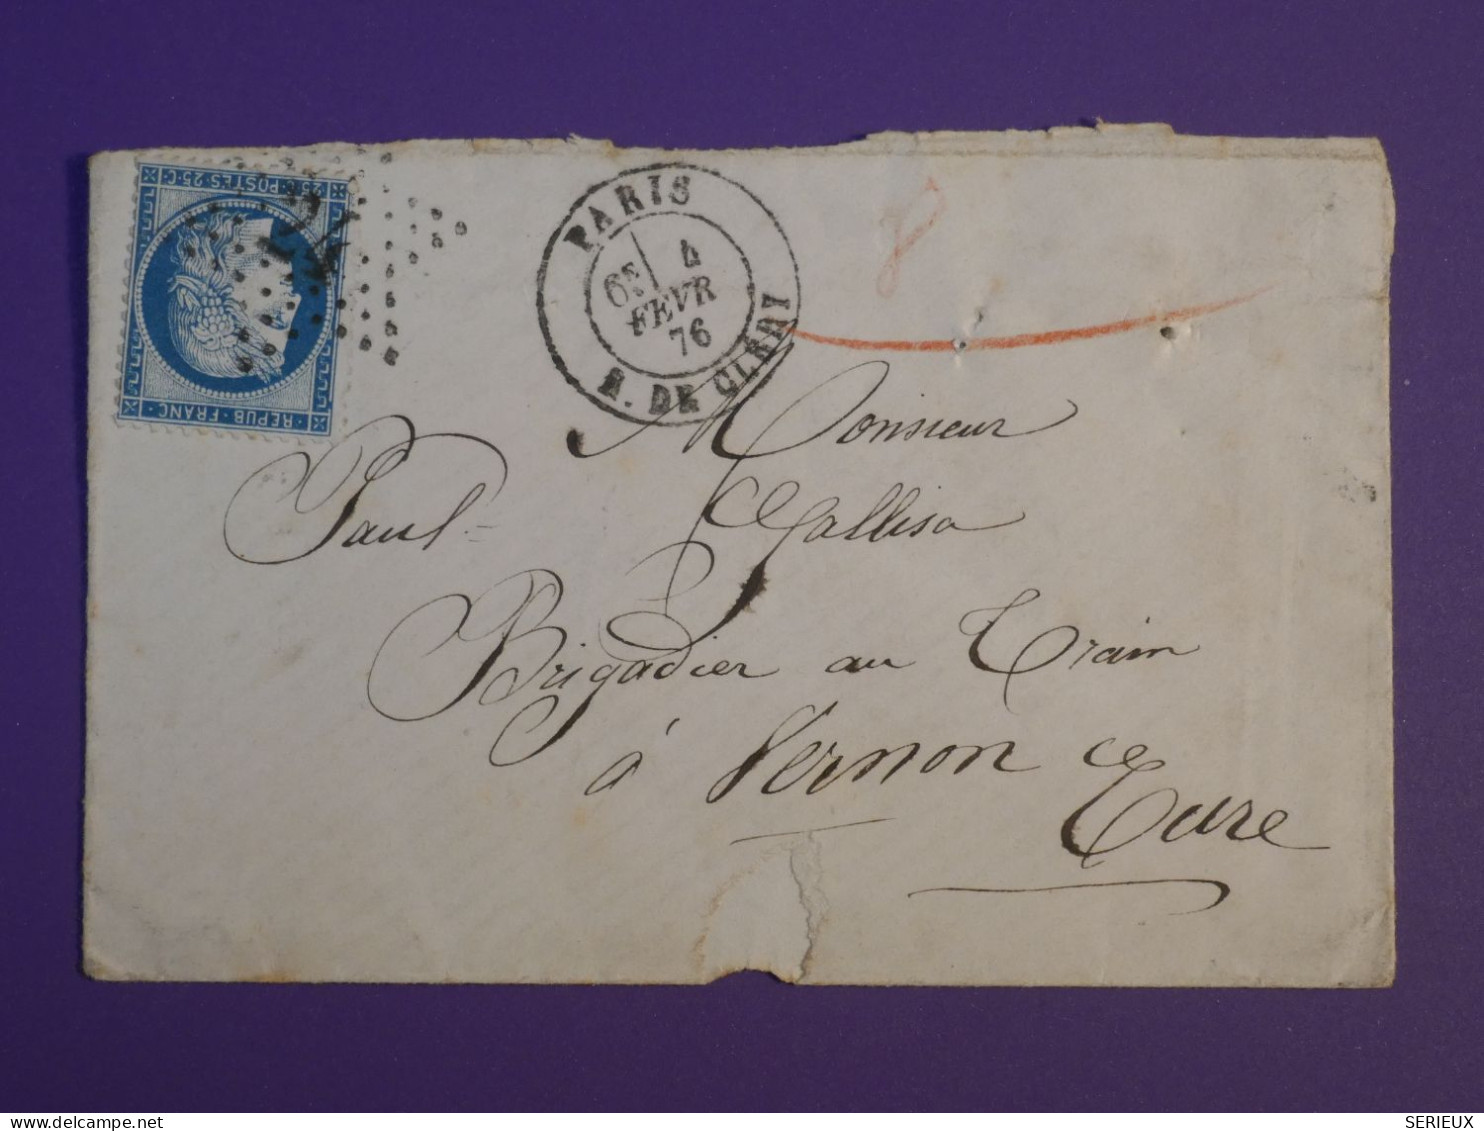 25 · POSTES · 25 · C
REPUB · FRANC ·
24
PARIS
6E 4
FEVR
76
R. DE CLERY
Monsieur
Paul Gallisa
Brigadier au Train
à Vernon
Eure
SERIEUX